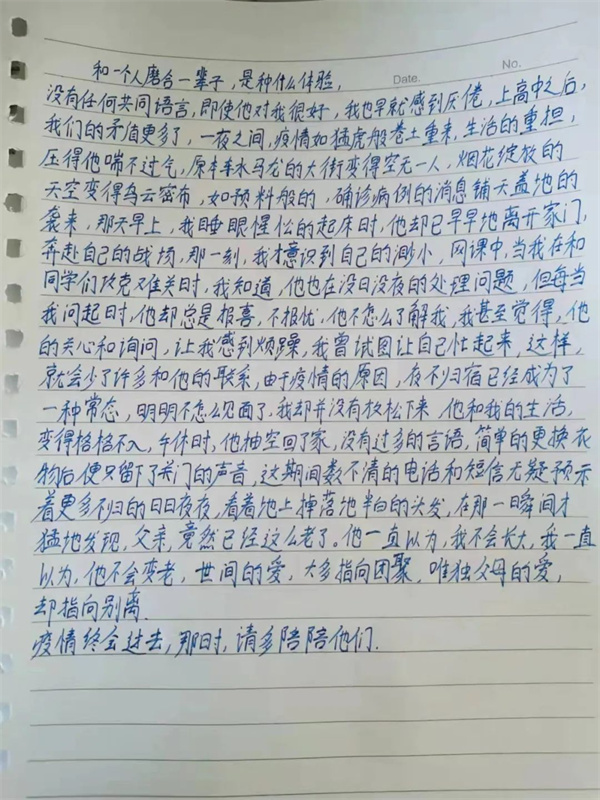 Date.
No.
和一个人磨合一辈子，是种什么体验，
没有任何共同语言，即使他对我很好，我也早就感到厌倦，上高中之后，
我们的矛盾更多了，一夜之间，疫情如猛虎般卷土重来，生活的重担，
压得他喘不过气，原本车水马龙的大街变得空无一人，烟花绽放的
天空变得乌云密布，如预料般的，确诊病例的消息铺天盖地的
袭来，那天早上，我睡眼惺忪的起床时，他却已早早地离开家门，
奔赴自己的战场，那一刻，我才意识到自己的渺小，网课中，当我在和
同学们攻克难关时，我知道，他也在没日没夜的处理问题，但每当
我问起时，他却总是报喜，不报忧，他不怎么了解我，我甚至觉得，他
的关心和询问，让我感到烦躁，我曾试图让自己忙起来，这样，
就会少了许多和他的联系，由于疫情的原因，夜不归宿已经成为了
一种常态，明明不怎么见面了，我却并没有放松下来，他和我的生活，
变得格格不入，午休时，他抽空回了家，没有过多的言语，简单的更换衣
物后便只留下了关门的声音，这期间数不清的电话和短信无疑预示
着更多不归的日日夜夜，看着地上掉落地半白的头发，在那一瞬间才
猛地发现，父亲，竟然已经这么老了。他一直以为，我不会长大，我一直
以为，他不会变老，世间的爱，大多指向团聚，唯独父母的爱，
却指向别离.
疫情终会过去，那时，请多陪陪他们.